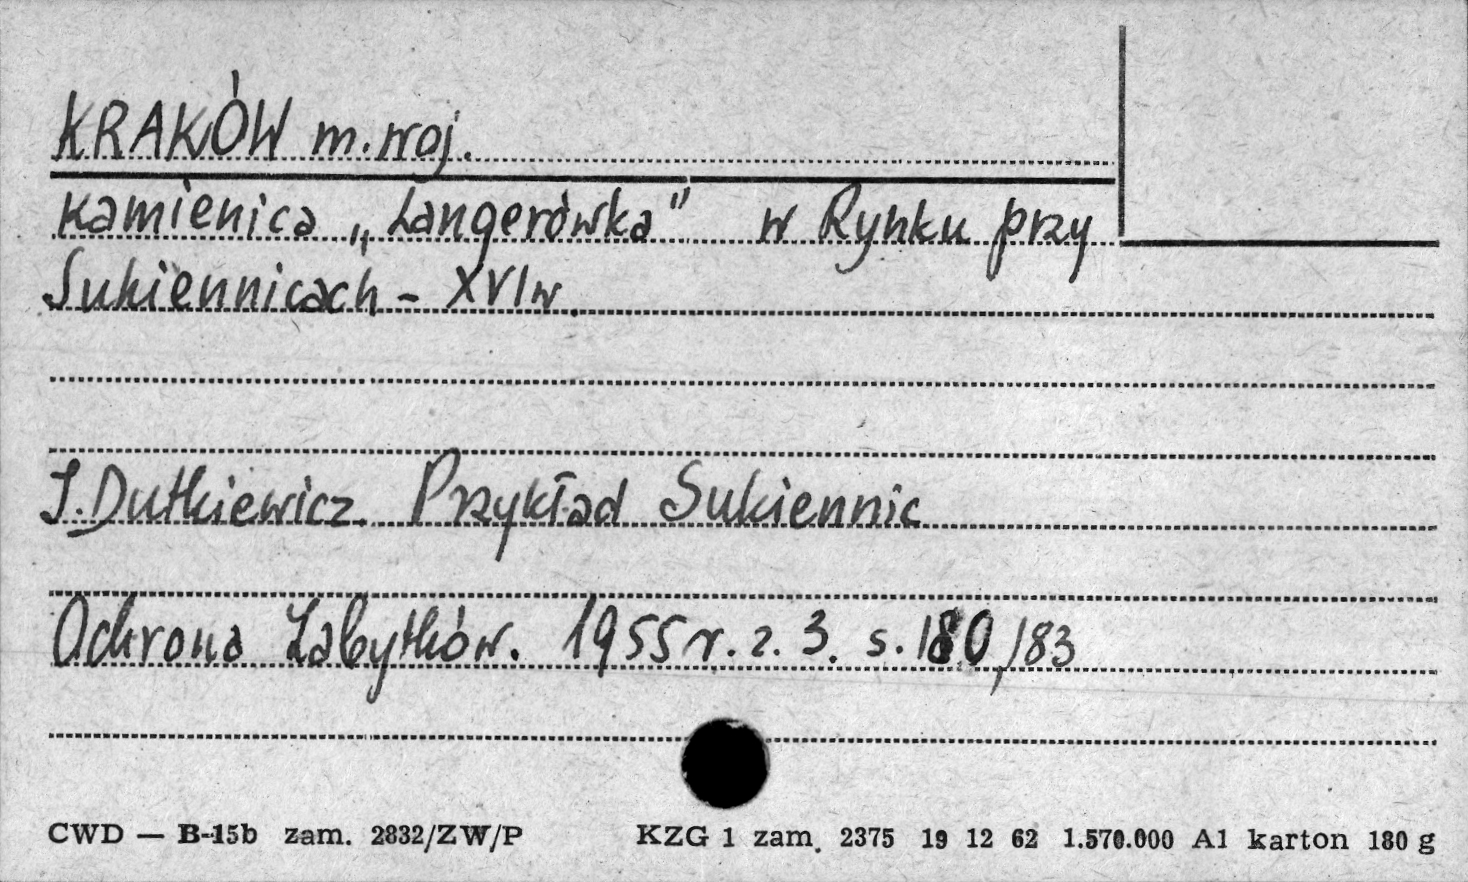 KRAKÓW m. woj.
Kamienica „Langerówka" w Rynku przy
Sukiennicach - XVI w.
J. Dutkiewicz. Przykład Sukiennic
Ochrona Zabytków. 1955 r. z. 3. s. 180, 183
CWD — B-15b zam. 2832/ZW/P KZG 1 zam. 2375 19 12 62 1.570.000 A1 karton 180 g